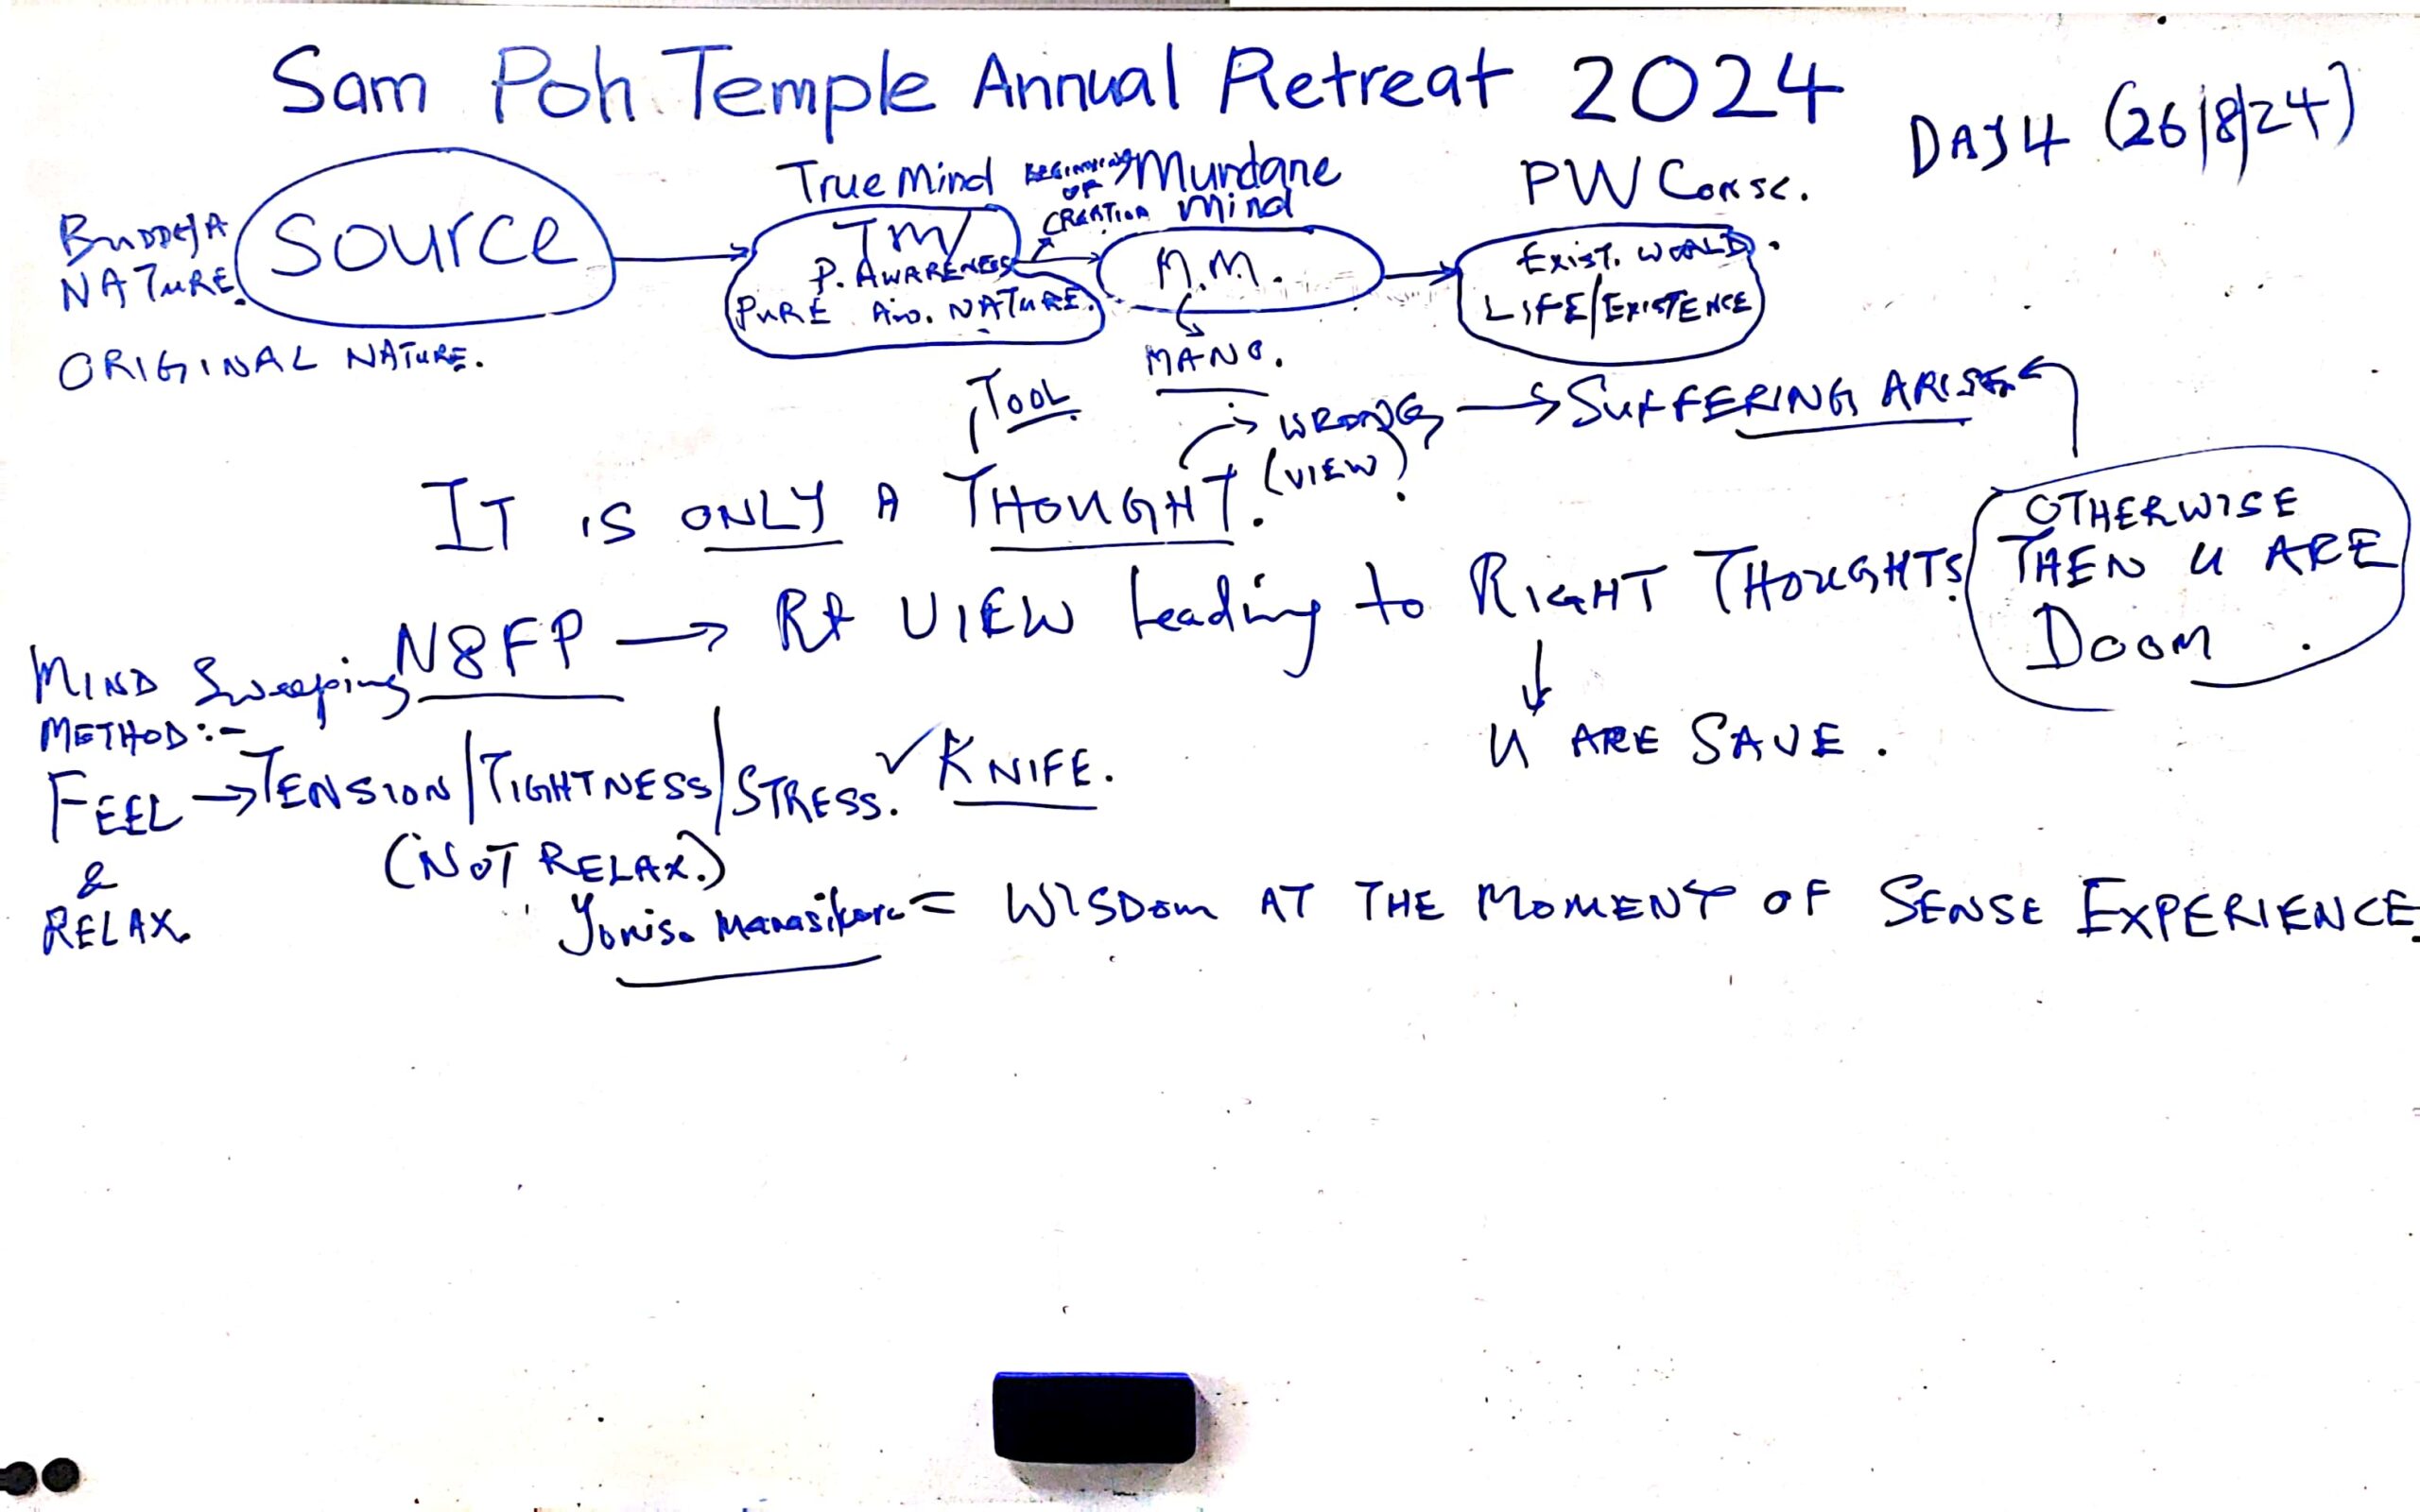 Sam Poh Temple Annual Retreat 2024
DAY 4 (26/8/24)
BUDDHA NATURE.
Source
ORIGINAL NATURE.
True Mind
TM
P. AWARENESS
PURE Aw. NATURE.
BEGINNING OF CREATION
Mundane Mind
M.M.
MANO.
PW Consc.
EXIST. WORLD.
LIFE/EXISTENCE
TOOL
WRONG (VIEW). → SUFFERING ARISE
IT IS ONLY A THOUGHT.
OTHERWISE
THEN U ARE
DOOM.
N8FP → Rt VIEW leading to RIGHT THOUGHTS.
↓
U ARE SAVE.
MIND Sweeping
METHOD:-
FEEL → TENSION/TIGHTNESS/STRESS. ✓ KNIFE.
(NOT RELAX.)
&
RELAX.
Yoniso Manasikara = WISDOM AT THE MOMENT OF SENSE EXPERIENCE.